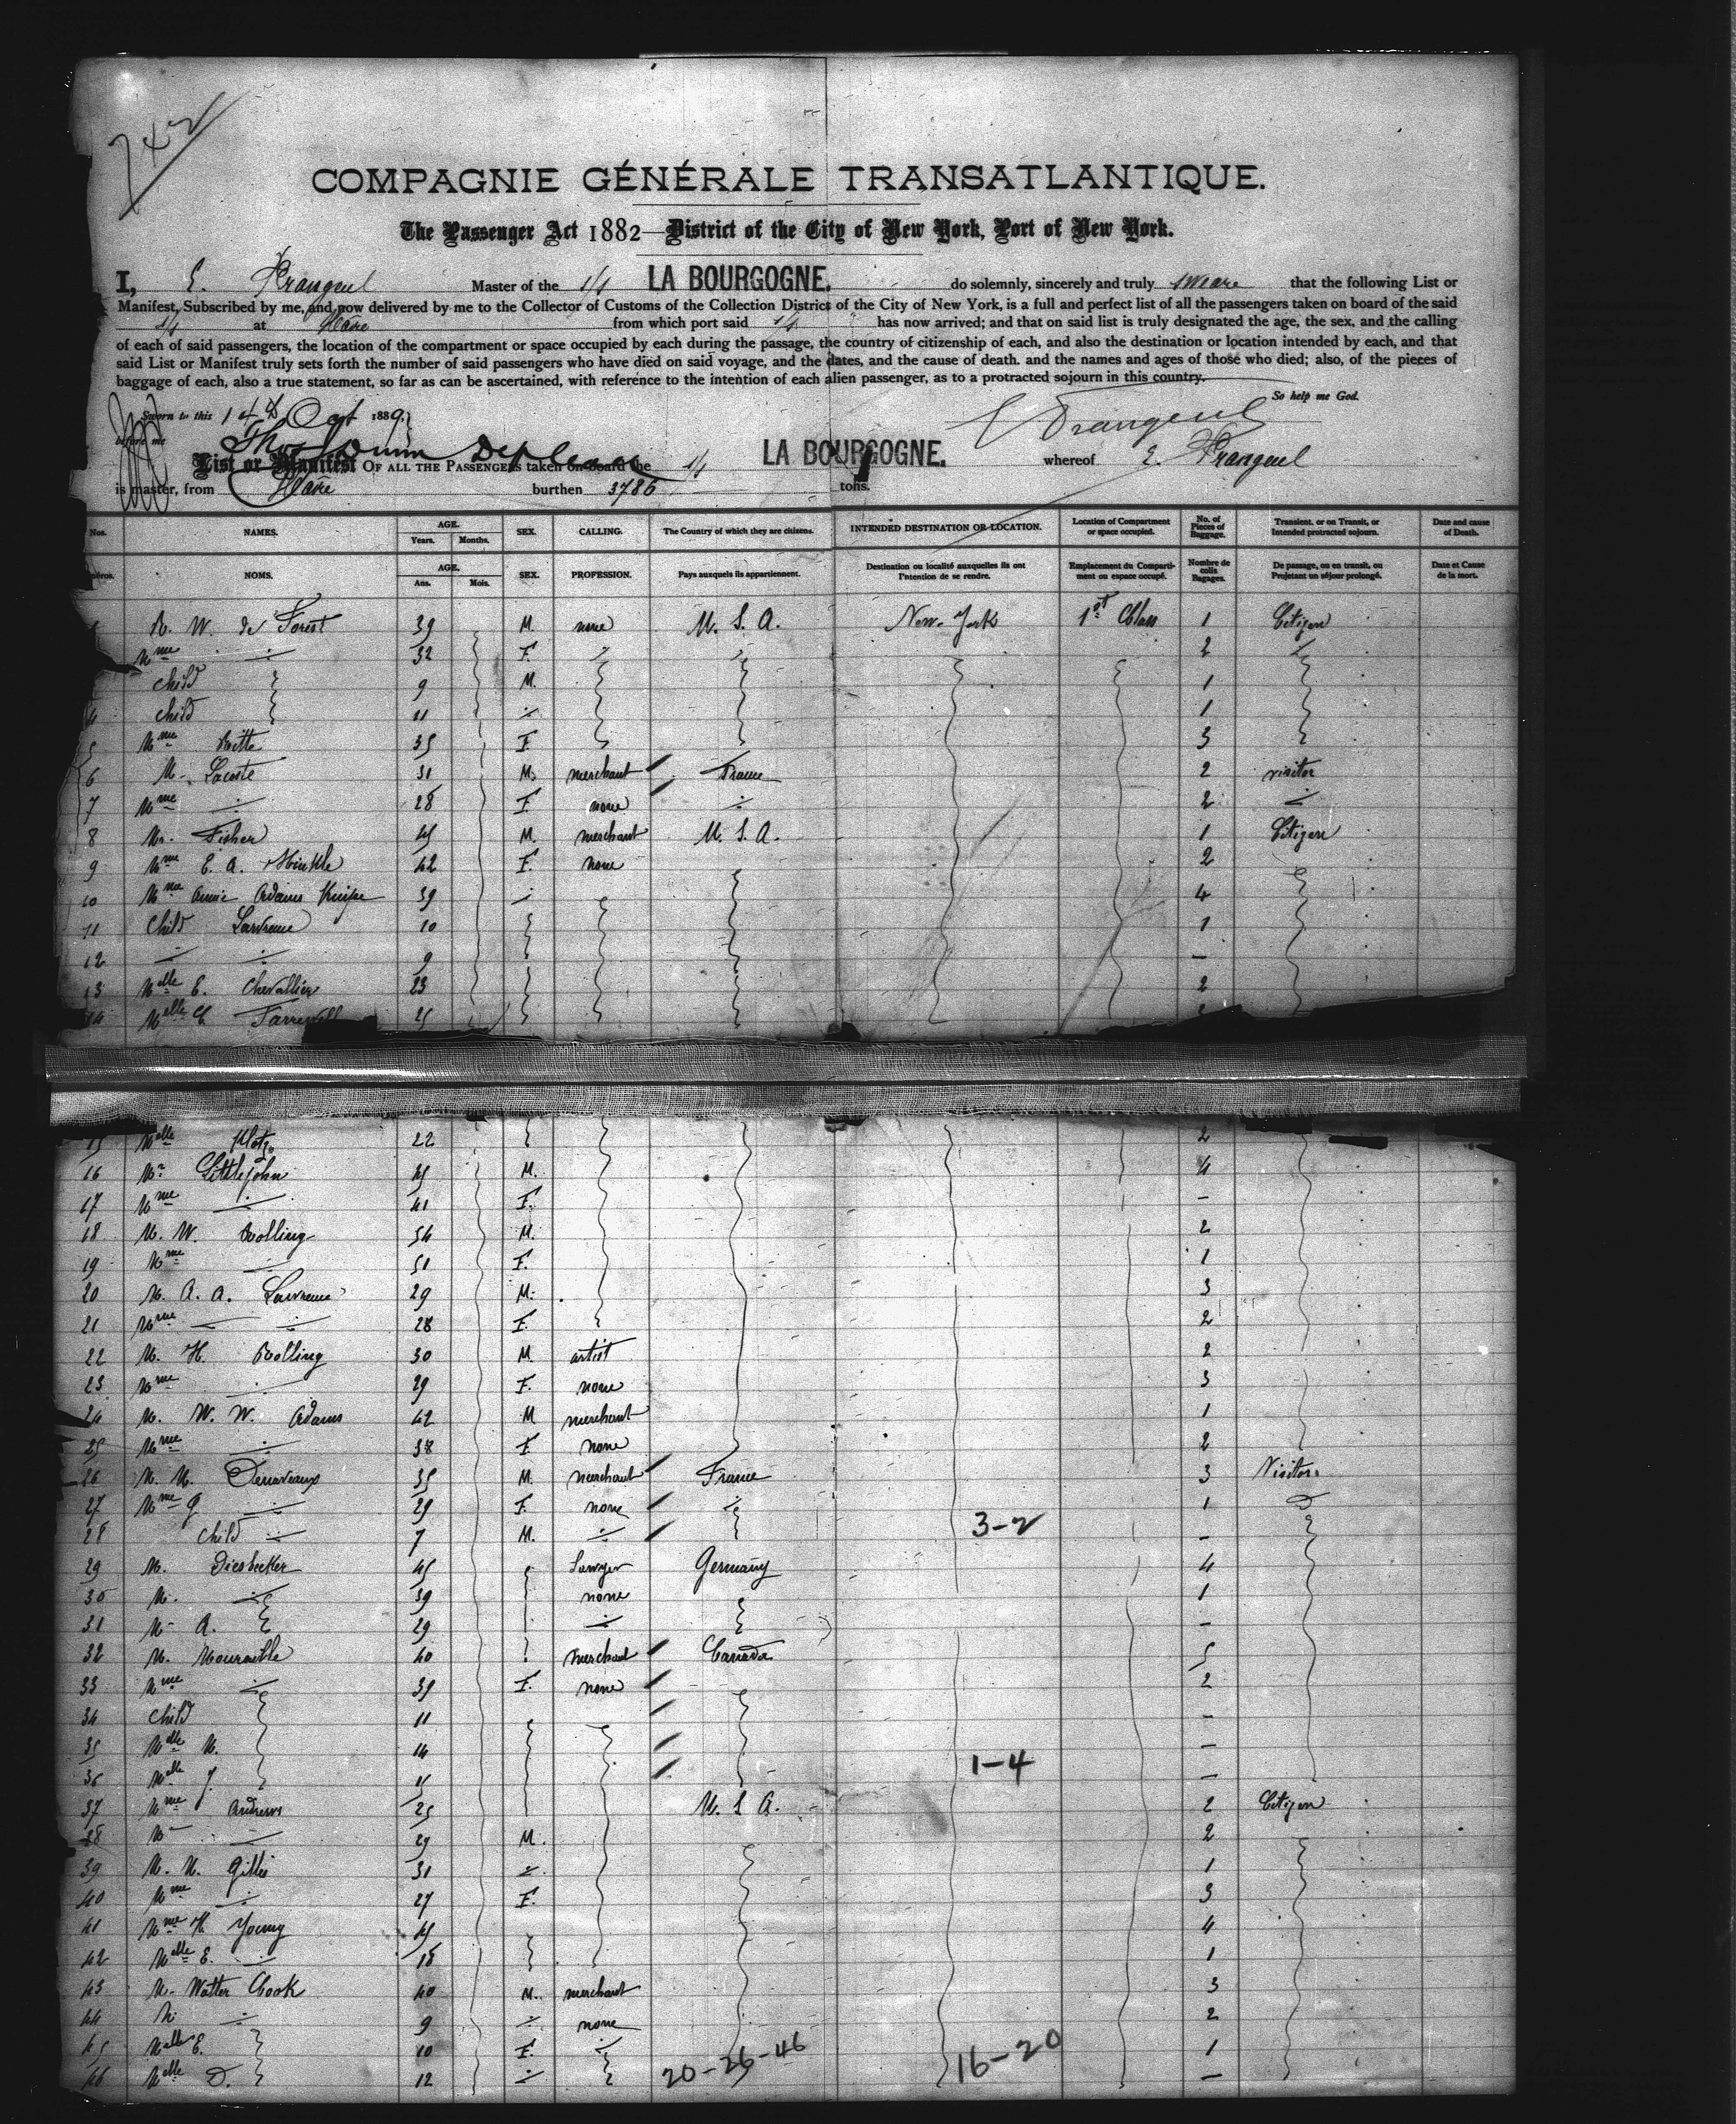 742
COMPAGNIE GÉNÉRALE TRANSATLANTIQUE.
The Passenger Act 1882—District of the City of New York, Port of New York.
I, E. Frangeul Master of the s/s LA BOURGOGNE. do solemnly, sincerely and truly swear that the following List or
Manifest, Subscribed by me, and now delivered by me to the Collector of Customs of the Collection District of the City of New York, is a full and perfect list of all the passengers taken on board of the said
s/s at Havre from which port said s/s has now arrived; and that on said list is truly designated the age, the sex, and the calling
of each of said passengers, the location of the compartment or space occupied by each during the passage, the country of citizenship of each, and also the destination or location intended by each, and that
said List or Manifest truly sets forth the number of said passengers who have died on said voyage, and the dates, and the cause of death. and the names and ages of those who died; also, of the pieces of
baggage of each, also a true statement, so far as can be ascertained, with reference to the intention of each alien passenger, as to a protracted sojourn in this country.
So help me God.
Sworn to this 14th Oct 1889.
before me
E Frangeul
List or Manifest OF ALL THE PASSENGERS taken on board the s/s LA BOURGOGNE. whereof E. Frangeul
is master, from Havre burthen 3786 tons.
Nos. NAMES. AGE. Years. Months. SEX. CALLING. The Country of which they are citizens. INTENDED DESTINATION OR LOCATION. Location of Compartment or space occupied. No. of Pieces of Baggage. Transient, or on Transit, or Intended protracted sojourn. Date and cause of Death.
NOMS. AGE. Ans. Mois. SEX. PROFESSION. Pays auxquels ils appartiennent. Destination ou localité auxquelles ils ont l'intention de se rendre. Emplacement du Compartiment ou espace occupé. Nombre de colis Bagages. De passage, ou en transit, ou Projetant un séjour prolongé. Date et Cause de la mort.
R. W. de Forest 39 M. none U. S. A. New-York 1st Class 1 Citizen
Mme 32 F. 2
child 9 M. 1
4 child 11 1
5 Mme 35 F. 3
6 M. Lacoste 31 M. merchant France 2 visitor
7 Mme 28 F. none 2
8 M. Fisher 45 M. merchant U. S. A. 1 Citizen
9 Mme E. A. Hinkle 42 F. none 2
10 Mme Annie Adams 39 4
11 Child Lawrence 10 1
12 9 —
13 Melle E. Chevallier 23 2
14 Melle Farrewell 25
15 Melle 22 2
16 Mr Littlejohn 45 M. 4
17 Mme 41 F. -
18 M. W. Bolling 54 M. 2
19 Mme 51 F. 1
20 M. A. A. Lawrence 29 M. 3
21 Mme 28 F. 2
22 M. H. Bolling 30 M. artist 2
23 Mme 29 F. none 3
24 M. W. W. Adams 42 M merchant 1
25 Mme 38 F. none 2
26 M. M. 35 M. merchant France 3 Visitor
27 Mme G 29 F. none 1
28 child 7 M. 3-2 -
29 M. Diesbecker 45 Lawyer Germany 4
30 M. 39 none 1
31 M. A. 29 -
32 M. 40 merchant Canada 5
33 Mme 39 F. none 2
34 child 11 -
35 Melle M. 14 -
36 Melle J. 15 1-4 -
37 Mme Andrews 25 U. S. A. 2 Citizen
38 M 29 M. 2
39 M. M. Gillie 31 1
40 Mme 27 F. 3
41 Mme H. Young 45 4
42 Melle E. 18 1
43 M. Walter Cook 40 M. merchant 3
44 M 9 none 2
45 Melle E. 10 F. 1
46 Melle D. 12 20-26-46 16-20 -